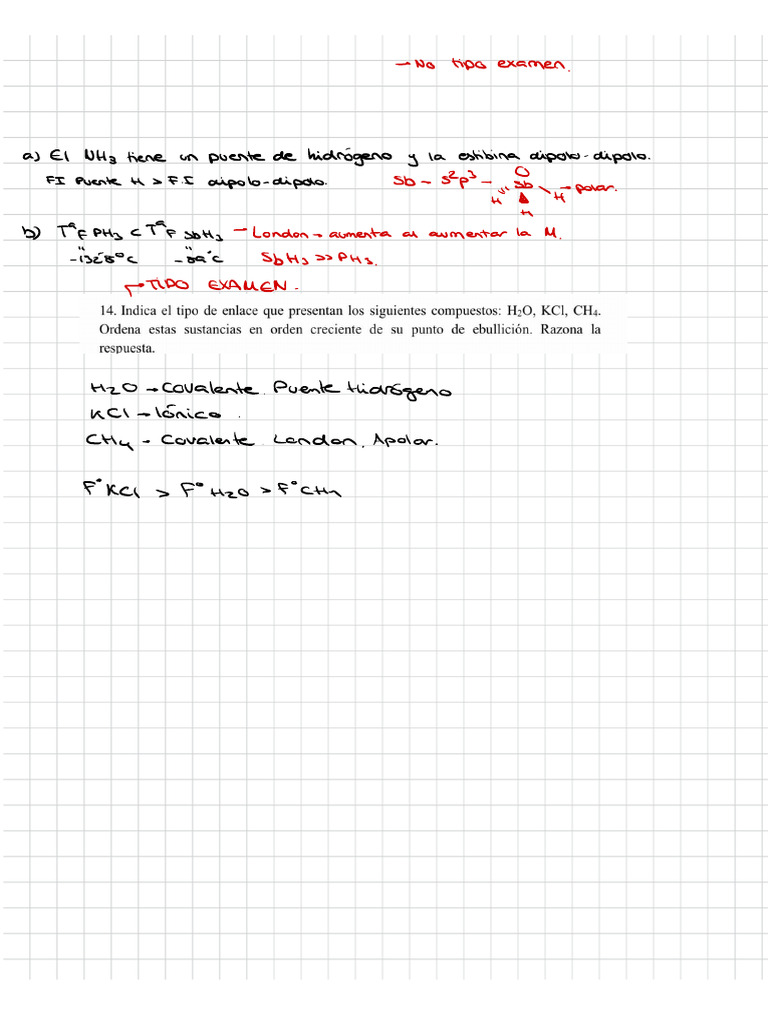 → No tipo examen.
a) El NH₃ tiene un puente de hidrógeno y la estibina dipolo-dipolo.
FI Puente H > F.I dipolo-dipolo. Sb - s²p³ - Sb H H H - polar.
b) Tª F PH₃ < Tª F SbH₃ - London → aumenta al aumentar la M.
-132'8°C -89°C SbH₃ >> PH₃.
→ TIPO EXAMEN.
14. Indica el tipo de enlace que presentan los siguientes compuestos: H₂O, KCl, CH₄.
Ordena estas sustancias en orden creciente de su punto de ebullición. Razona la
respuesta.
H₂O → Covalente. Puente Hidrógeno
KCl → Iónico.
CH₄ - Covalente. London. Apolar.
F° KCl > F° H₂O > F° CH₄